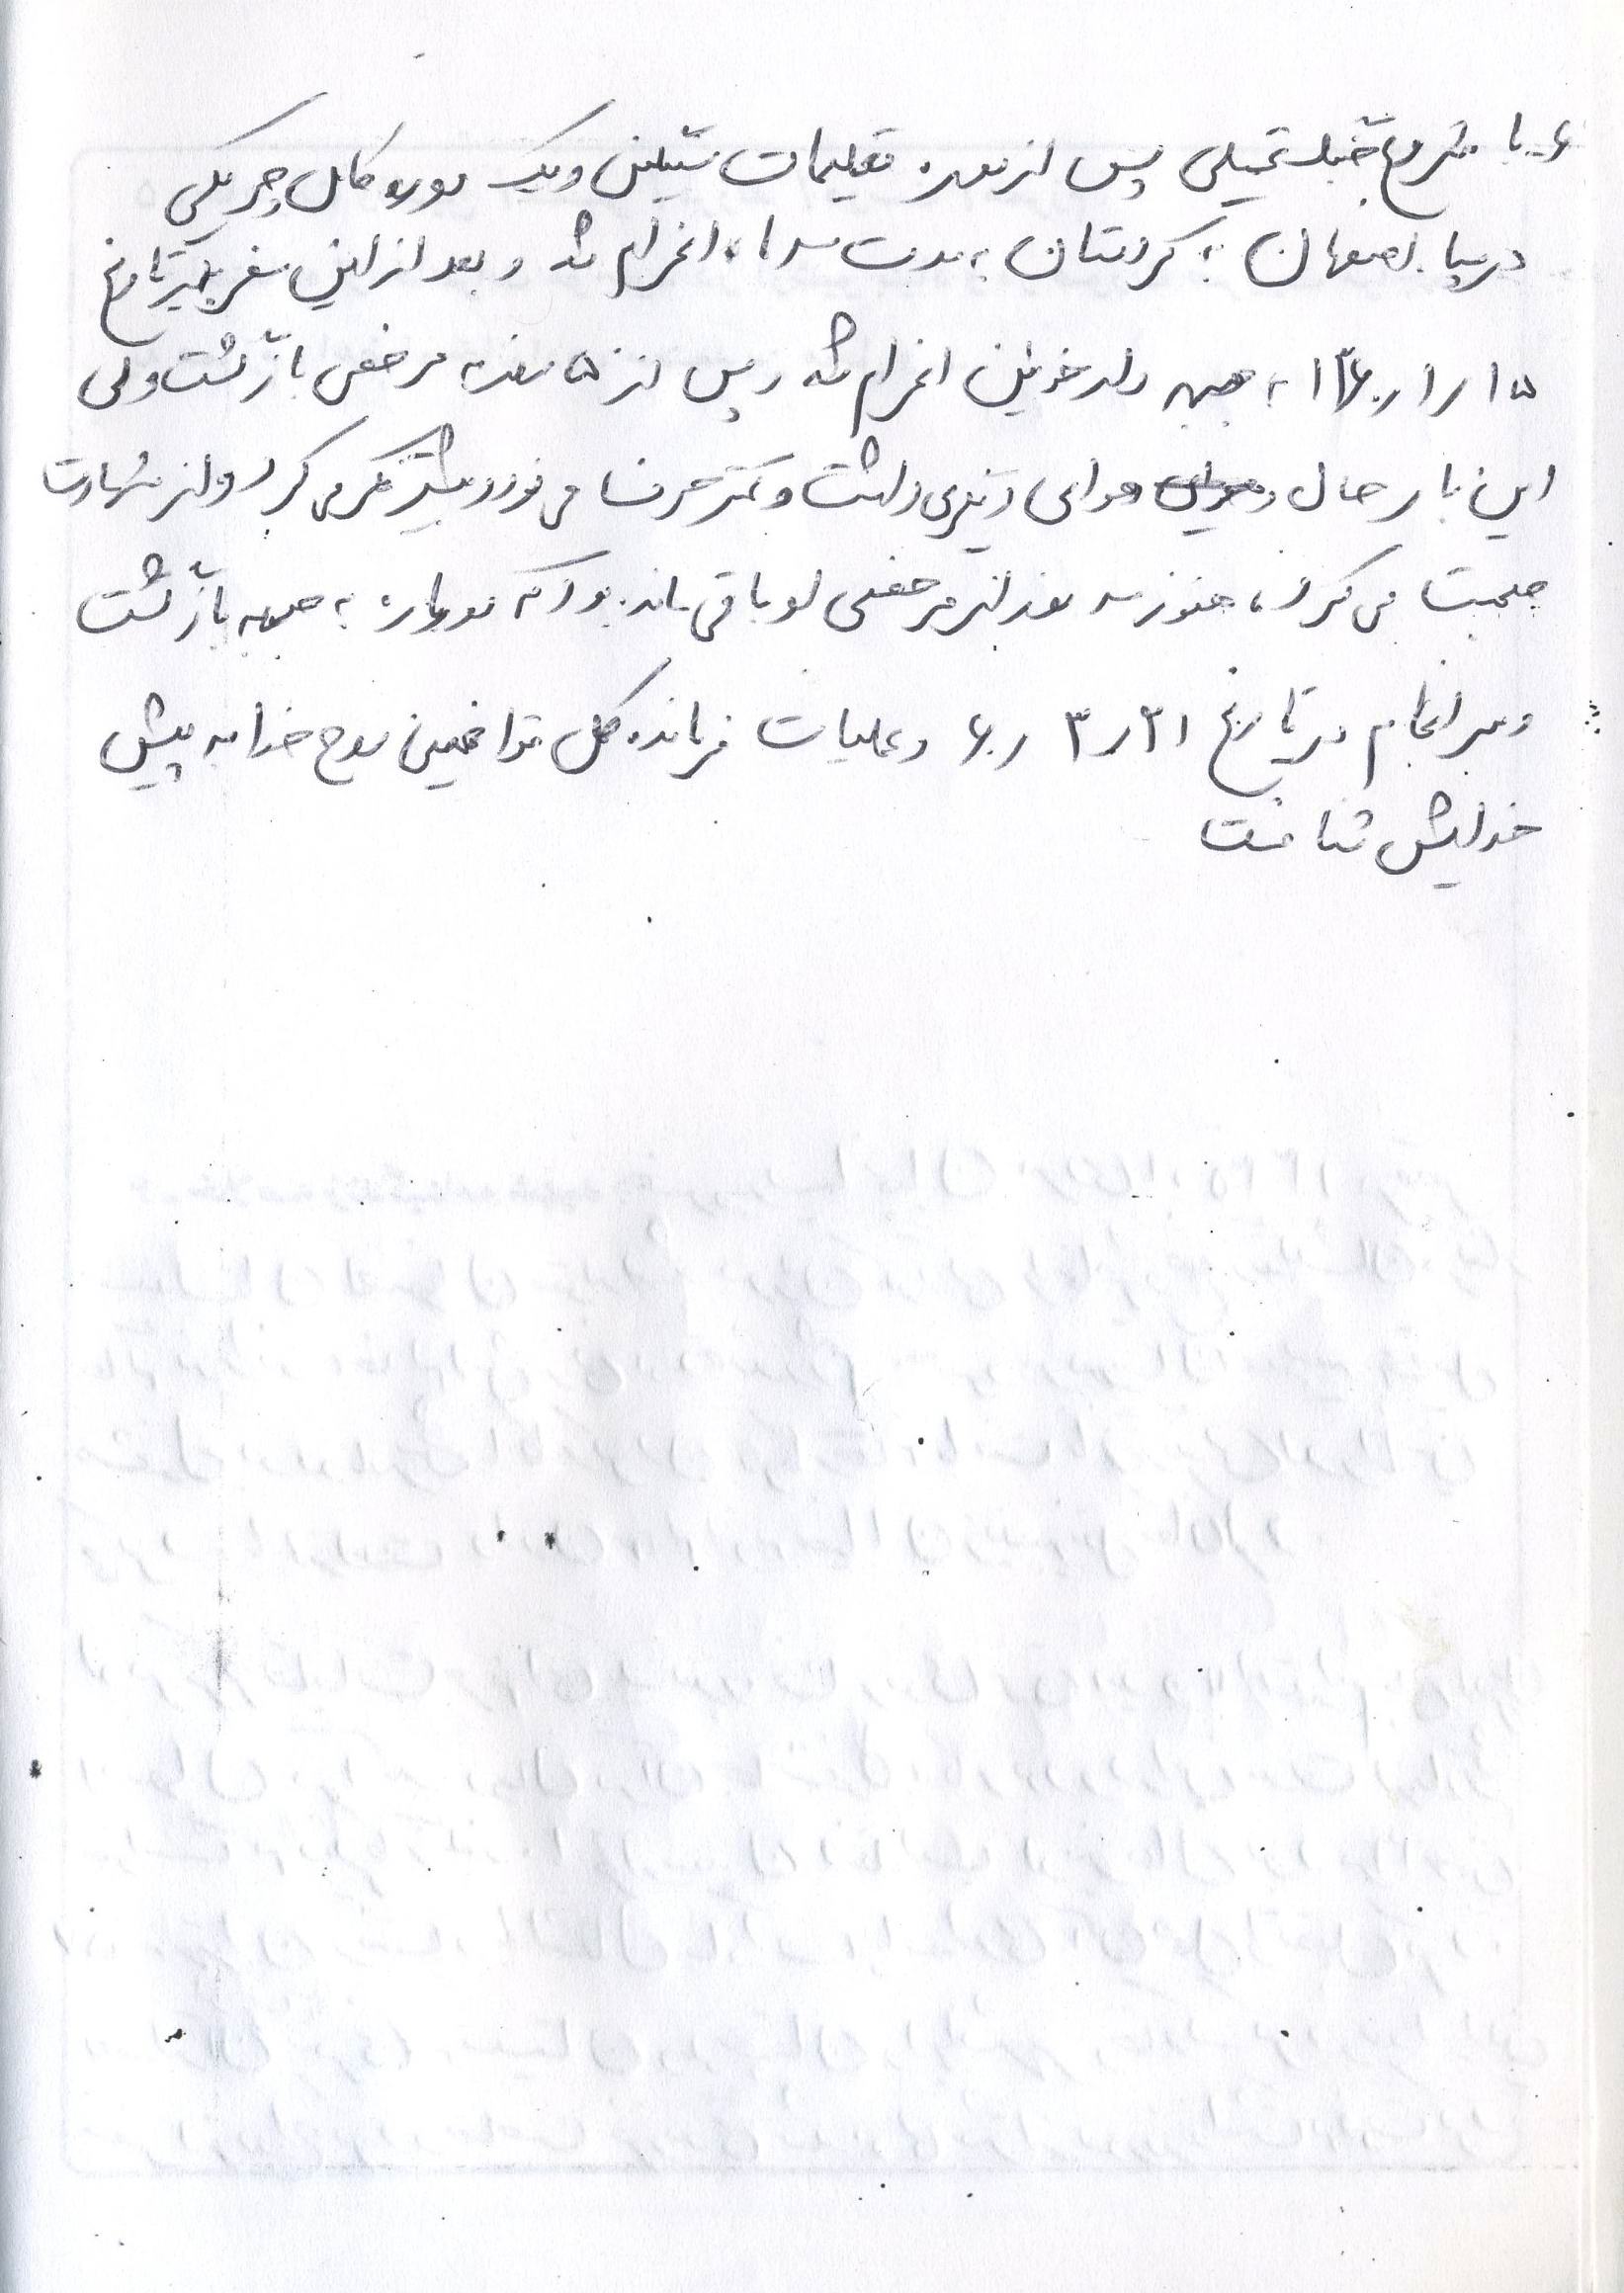 ۶- با شروع جنگ تحمیلی پس از دوره تعلیمات سنگین و یک دوره کامل چریکی
در سپاه اصفهان به کردستان به مدت سه ماه اعزام شد و بعد از این سفر در تاریخ
۱۵ ر۱ ر۱۳۶۰ به جبهه دارخوئین اعزام شد و پس از ۵۰ روز به مرخصی بازگشت ولی
این بار حال و هوای دیگری داشت و کمتر حرف می زد و بیشتر فکر می کرد و از شهادت
صحبت می کرد، هنوز سه روز از مرخصی او باقی مانده بود که دوباره به جبهه بازگشت
و سرانجام در تاریخ ۲۱ر ۳ ر۶۰ و عملیات فرمانده کل قوا خمینی روح خدا به پیش
خدایش شتافت